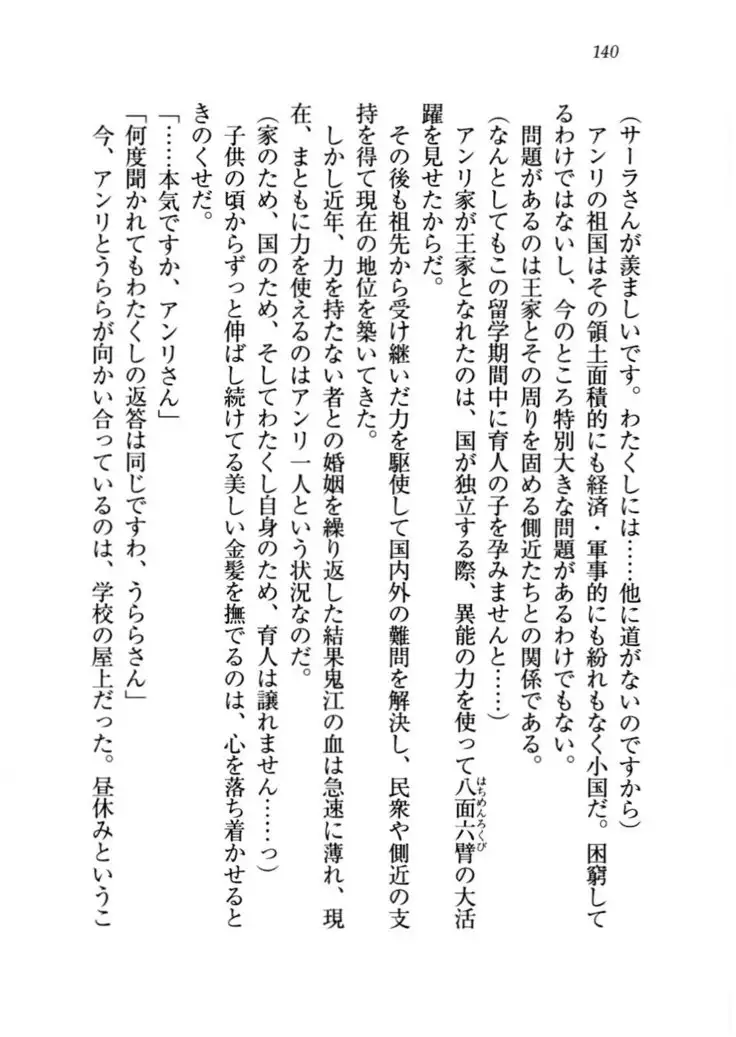 140
(サーラさんが羨ましいです。わたくしには……他に道がないのですから)
アンリの祖国はその領土面積的にも経済・軍事的にも紛れもなく小国だ。困窮して
るわけではないし、今のところ特別大きな問題があるわけでもない。
問題があるのは王家とその周りを固める側近たちとの関係である。
(なんとしてもこの留学期間中に育人の子を孕みませんと……)
アンリ家が王家となれたのは、国が独立する際、異能の力を使って八面六臂の大活
はちめんろくび
躍を見せたからだ。
その後も祖先から受け継いだ力を駆使して国内外の難問を解決し、民衆や側近の支
持を得て現在の地位を築いてきた。
しかし近年、力を持たない者との婚姻を繰り返した結果鬼江の血は急速に薄れ、現
在、まともに力を使えるのはアンリ一人という状況なのだ。
(家のため、国のため、そしてわたくし自身のため、育人は譲れません……っ)
子供の頃からずっと伸ばし続けてる美しい金髪を撫でるのは、心を落ち着かせると
きのくせだ。
「……本気ですか、アンリさん」
「何度聞かれてもわたくしの返答は同じですわ、うららさん」
今、アンリとうららが向かい合っているのは、学校の屋上だった。昼休みというこ